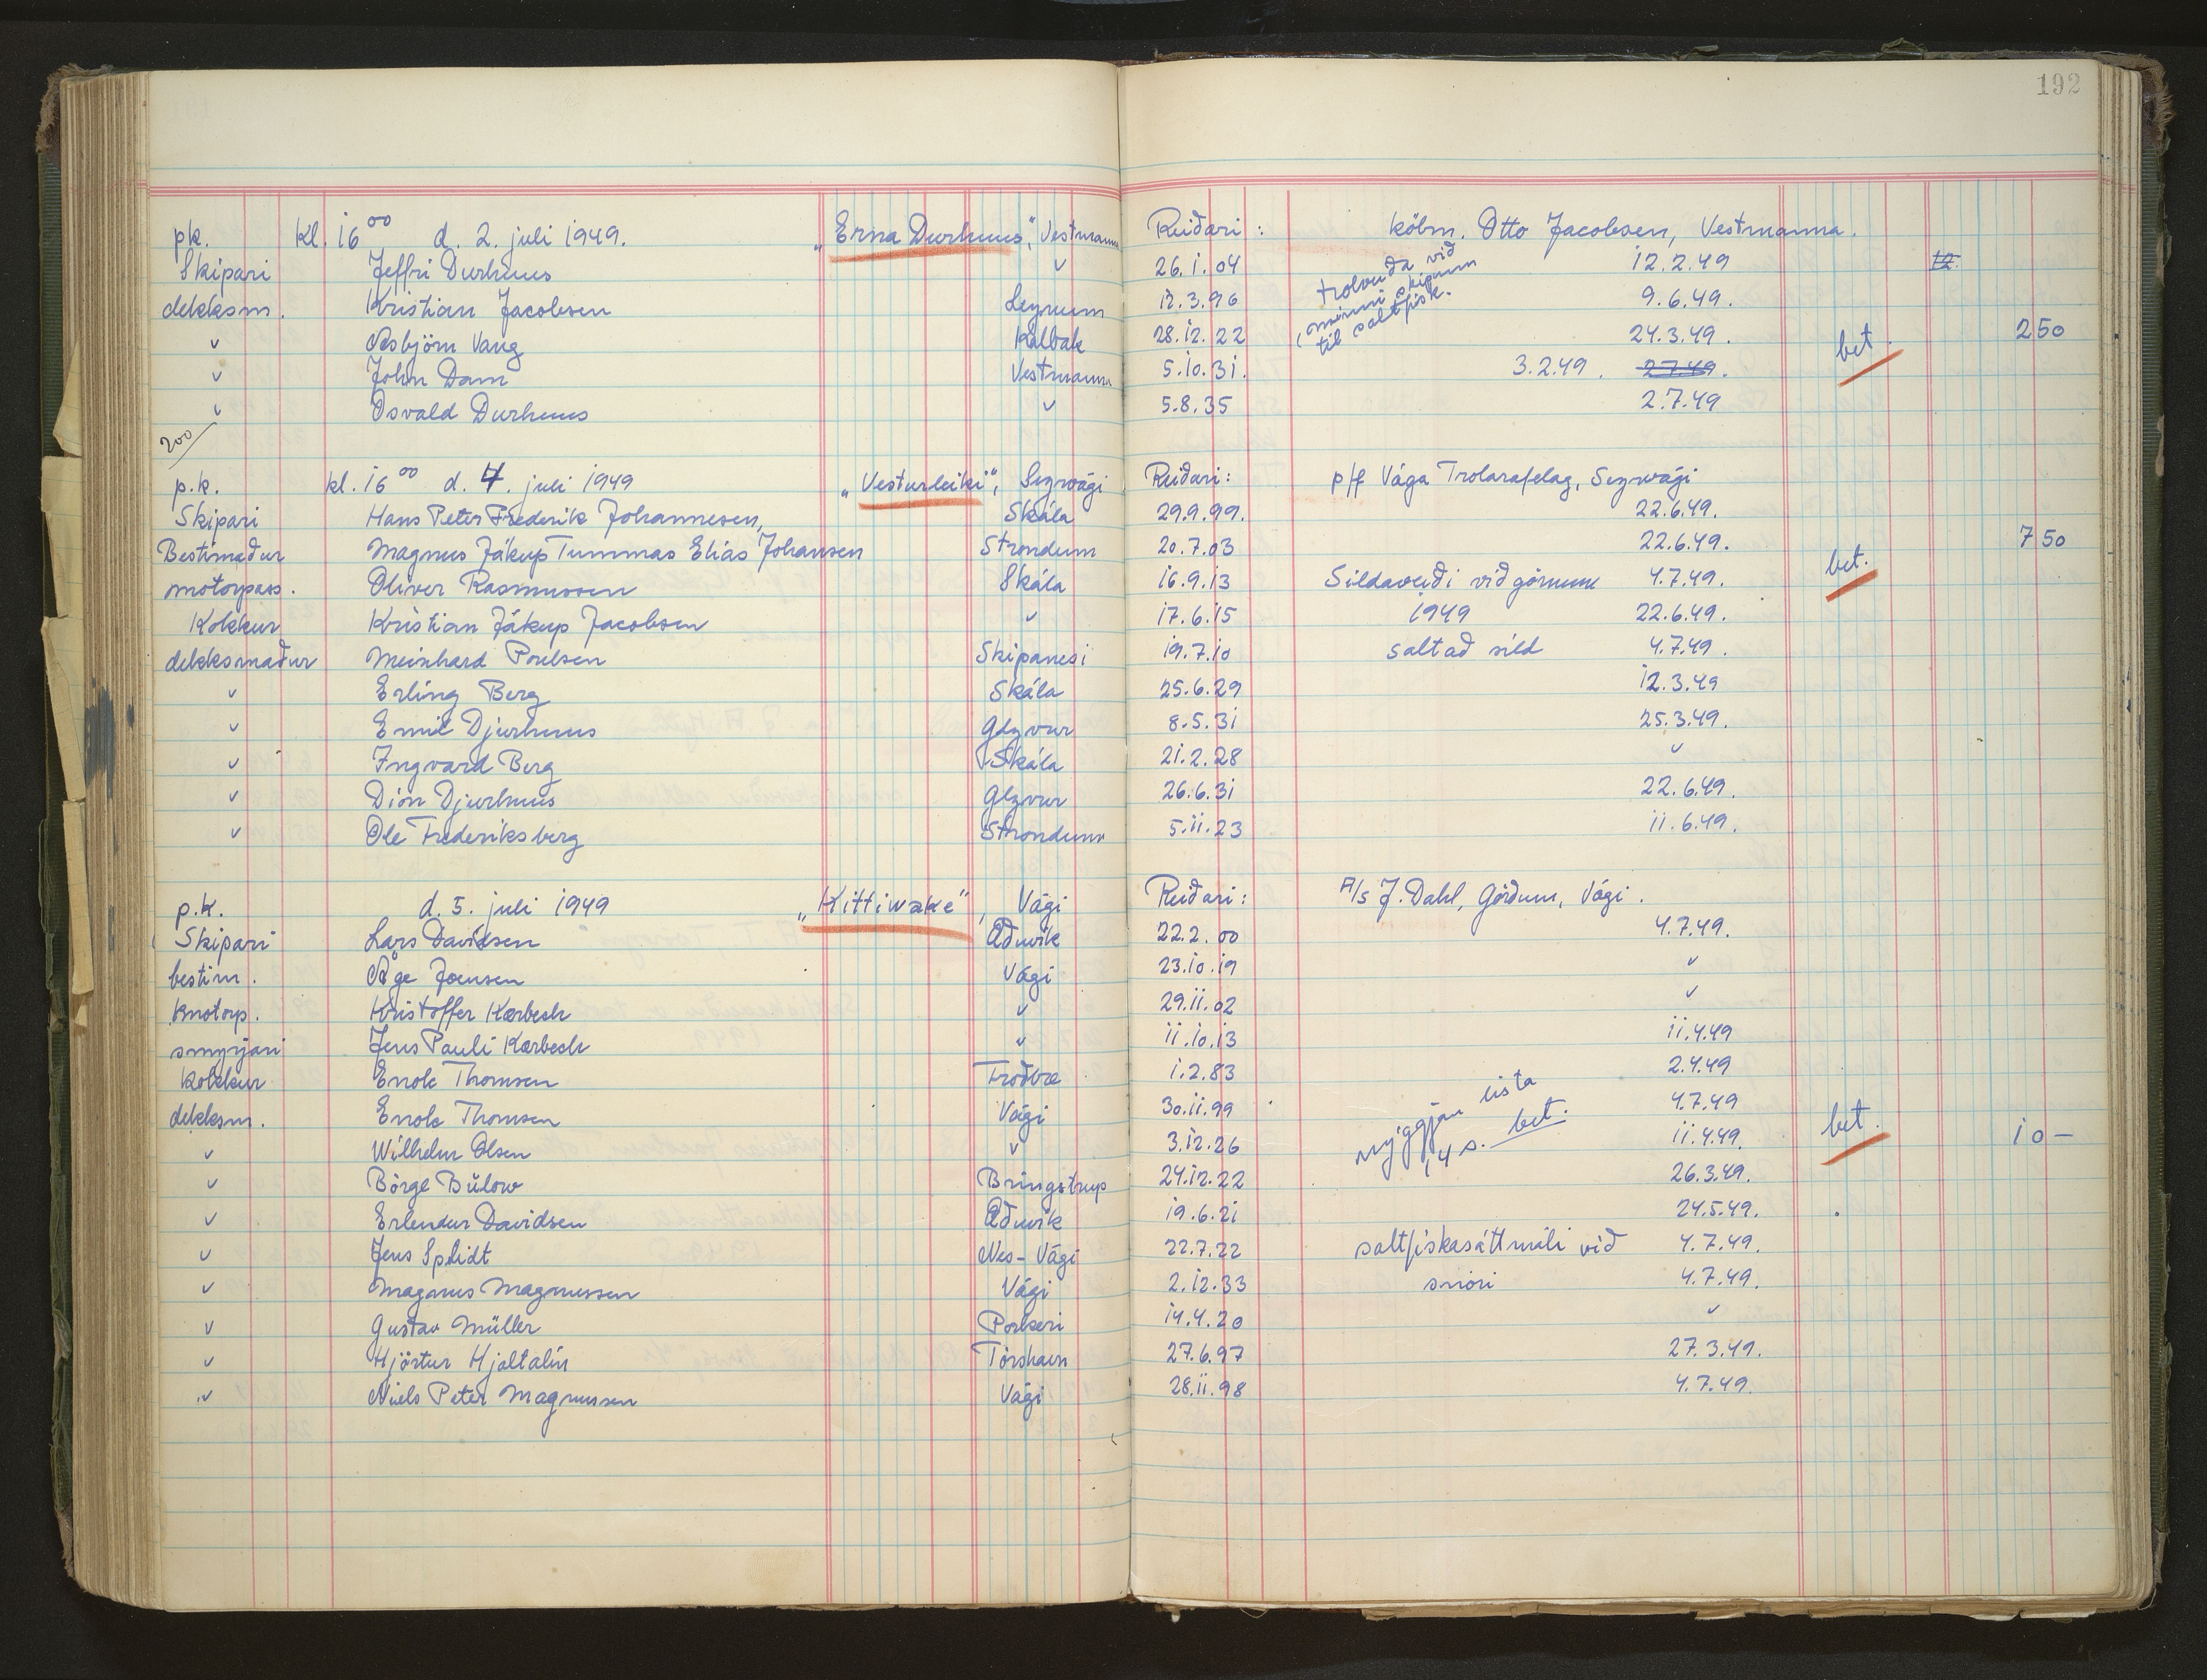 192
pk. kl. 16⁰⁰ d. 2. juli 1949. „Erna Durhuus", Vestmanna Reiðari: köbm. Otto Jacobsen, Vestmanna.
Skipari Jeffri Durhuus ✓ 26.1.04 12.2.49 12
dekksm. Kristian Jacobsen Leynum 12.3.96 9.6.49.
✓ Asbjörn Vang Kalbak 28.12.22 24.3.49. bet. 2 50
✓ John Dam Vestmanna 5.10.31. 3.2.49. 2.7.49.
✓ Osvald Durhuus ✓ 5.8.35 2.7.49
trolveiða við
minni skipum
til saltfisk.
200
p.k. kl. 16⁰⁰ d. 4. juli 1949 „Vesturleiki", Seyrvági Reiðari: p/f Vága Trolarafelag, Seyrvági
Skipari Hans Peter Frederik Johannesen, Skála 29.9.99. 22.6.49.
Bestimaður Magnus Jákup Tummas Eliás Johansen Strondum 20.7.03 22.6.49. 7 50
motorpass. Oliver Rasmussen Skála 16.9.13 Sildaveiði við górnum 4.7.49. bet.
Kokkur Kristian Jákup Jacobsen ✓ 17.6.15 1949 22.6.49.
dekksmaður Meinhard Poulsen Skipanesi 19.7.10 saltað sild 4.7.49.
✓ Erling Berg Skála 25.6.29 12.3.49
✓ Emil Djurhuus Glyvur 8.5.31 25.3.49.
✓ Ingvard Berg Skála 21.2.28 ✓
✓ Dion Djurhuus Glyvur 26.6.31 22.6.49.
✓ Ole Frederiksberg Strondum 5.11.23 11.6.49.
p.k. d. 5. juli 1949 „Kittiwake", Vági Reiðari: A/s J. Dahl, Görðum, Vági.
Skipari Lars Davidsen Øðuvík 22.2.00 4.7.49.
bestim. Åge Joensen Vági 23.10.19 ✓
motorp. Kristoffer Kærbech ✓ 29.11.02 ✓
smyrjari Jens Pauli Kærbech ✓ 11.10.13 11.4.49
Kokkur Enok Thomsen Froðbæ 1.2.83 2.4.49
dekksm. Enok Thomsen Vági 30.11.99 4.7.49
✓ Wilhelm Olsen ✓ 3.12.26 11.4.49. bet. 10 -
✓ Börge Bülow Bringstrup 24.12.22 26.3.49.
nýggjan lista
14 s. bet.
✓ Erlendur Davidsen Øðuvík 19.6.21 24.5.49.
✓ Jens Splidt Nes-Vági 22.7.22 saltfiskasáttmáli við 4.7.49.
✓ Magnus Magnussen Vági 2.12.33 snóri 4.7.49.
✓ Gustav Müller Porkeri 14.4.20 ✓
✓ Hjörtur Hjaltalín Tórshavn 27.6.97 27.3.49.
✓ Niels Peter Magnussen Vági 28.11.98 4.7.49.